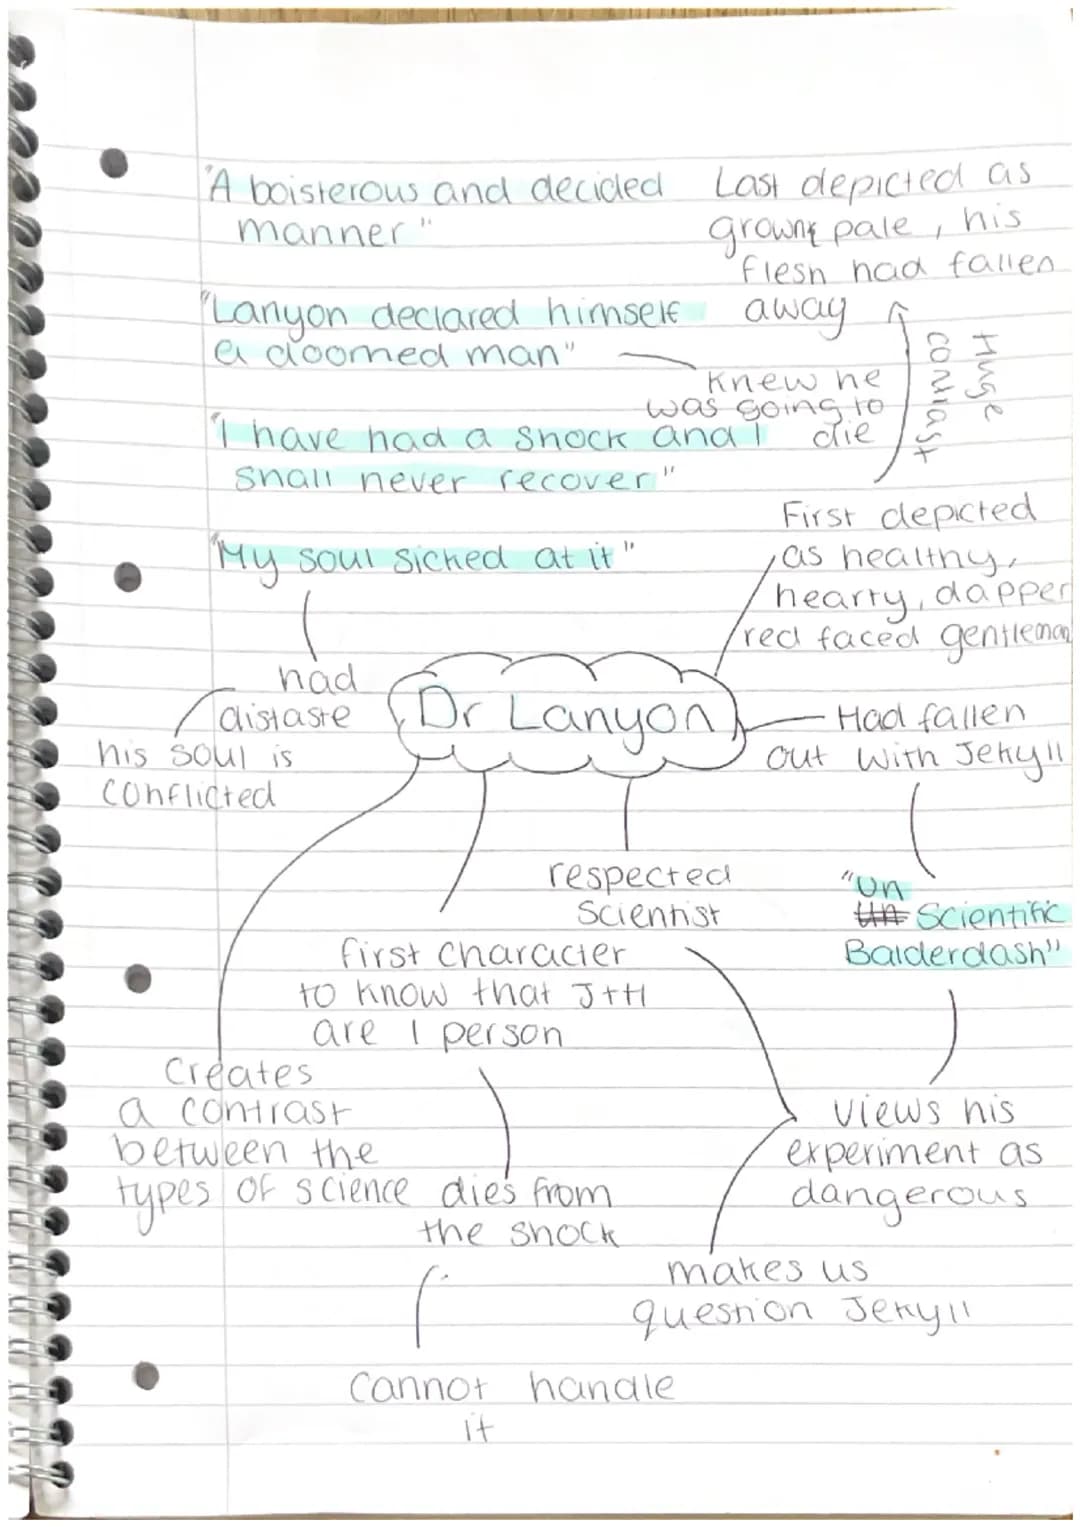 "A boisterous and decided
manner"
Last depicted as
growng pale, his
flesh had fallen
away
"Lanyon declared himself
a doomed man"
Knew he
was going to
die
Huge
contrast
"I have had a shock and I
shall never recover"
First depicted
as healthy,
hearty, dapper
red faced gentleman
"My soul sicked at it"
had
distaste
his soul is
conflicted
Dr Lanyon
Had fallen
out with Jekyll
"Un
Scientific
Balderdash"
respected
Scientist
first character
to know that J+H
are 1 person
Creates
a contrast
between the
types of science
dies from
the shock
views his
experiment as
dangerous
makes us
question Jekyll
Cannot handle
it